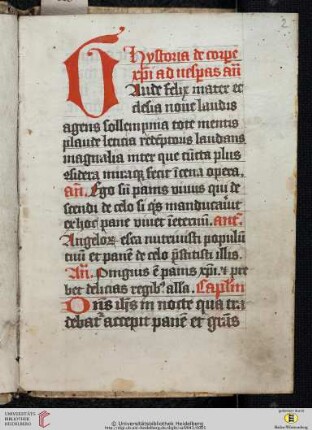 2
Hystoria de corpe
xpi ad uespas añ
Gaude felix mater ec
clesia noue laudis
agens sollempnia tote mentis
plaude leticia
laudans
magnalia inter que cūcta plus
cena opera.
añ. Ego sū panis viuus qui de
scendi de celo si q's manducauit
ex hoc pane viuet ī eternū. ant.
Angelor esca nutriuisti populū
tuū et panē de celo p̄stitisti illis.
añ. Pinguis ē panis xpi. et pre
bet delicias regib' alla. Caplm
Dns ihs in nocte qua tra
debat' accepit panē et grās
UNIVERSITÄTS
BIBLIOTHEK
HEIDELBERG
© Universitätsbibliothek Heidelberg
gefördert durch
Baden-Württemberg